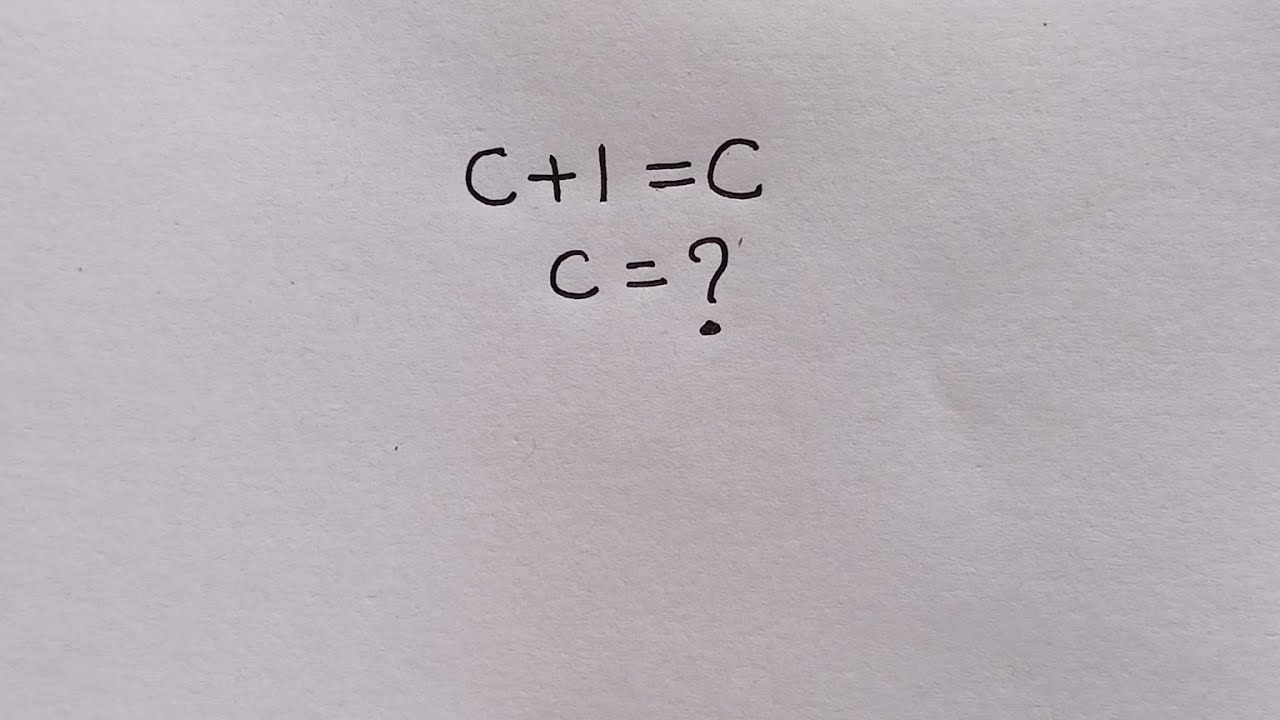 C+1=C
C=?